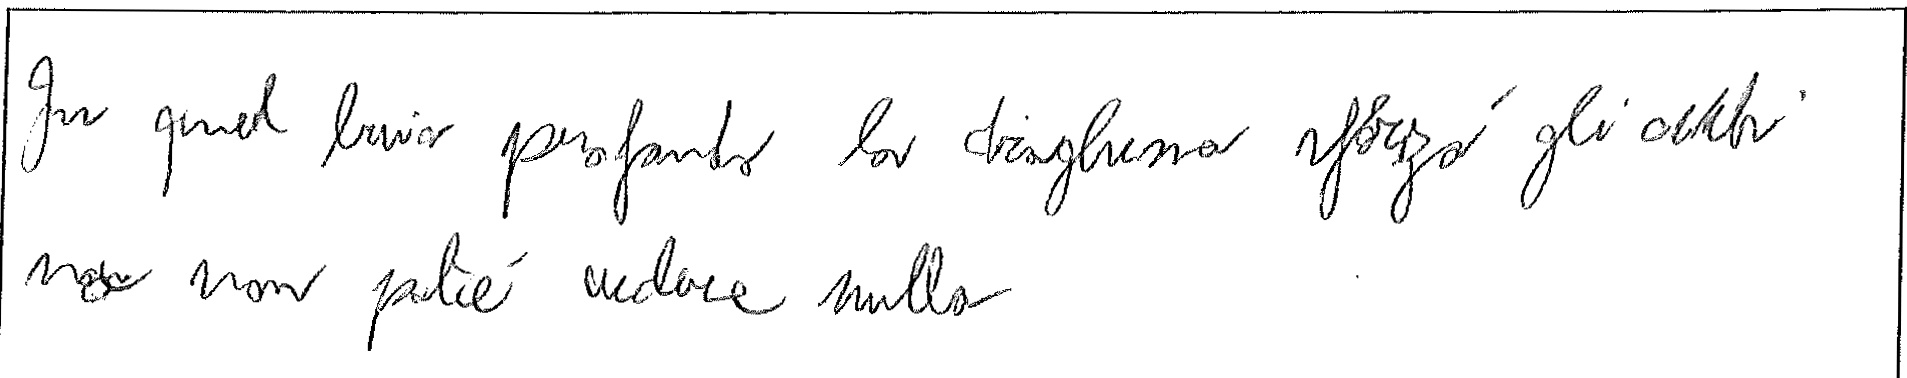 In quel buio profondo la tigressa sforzá gli occhi
ma non poté vedere nulla